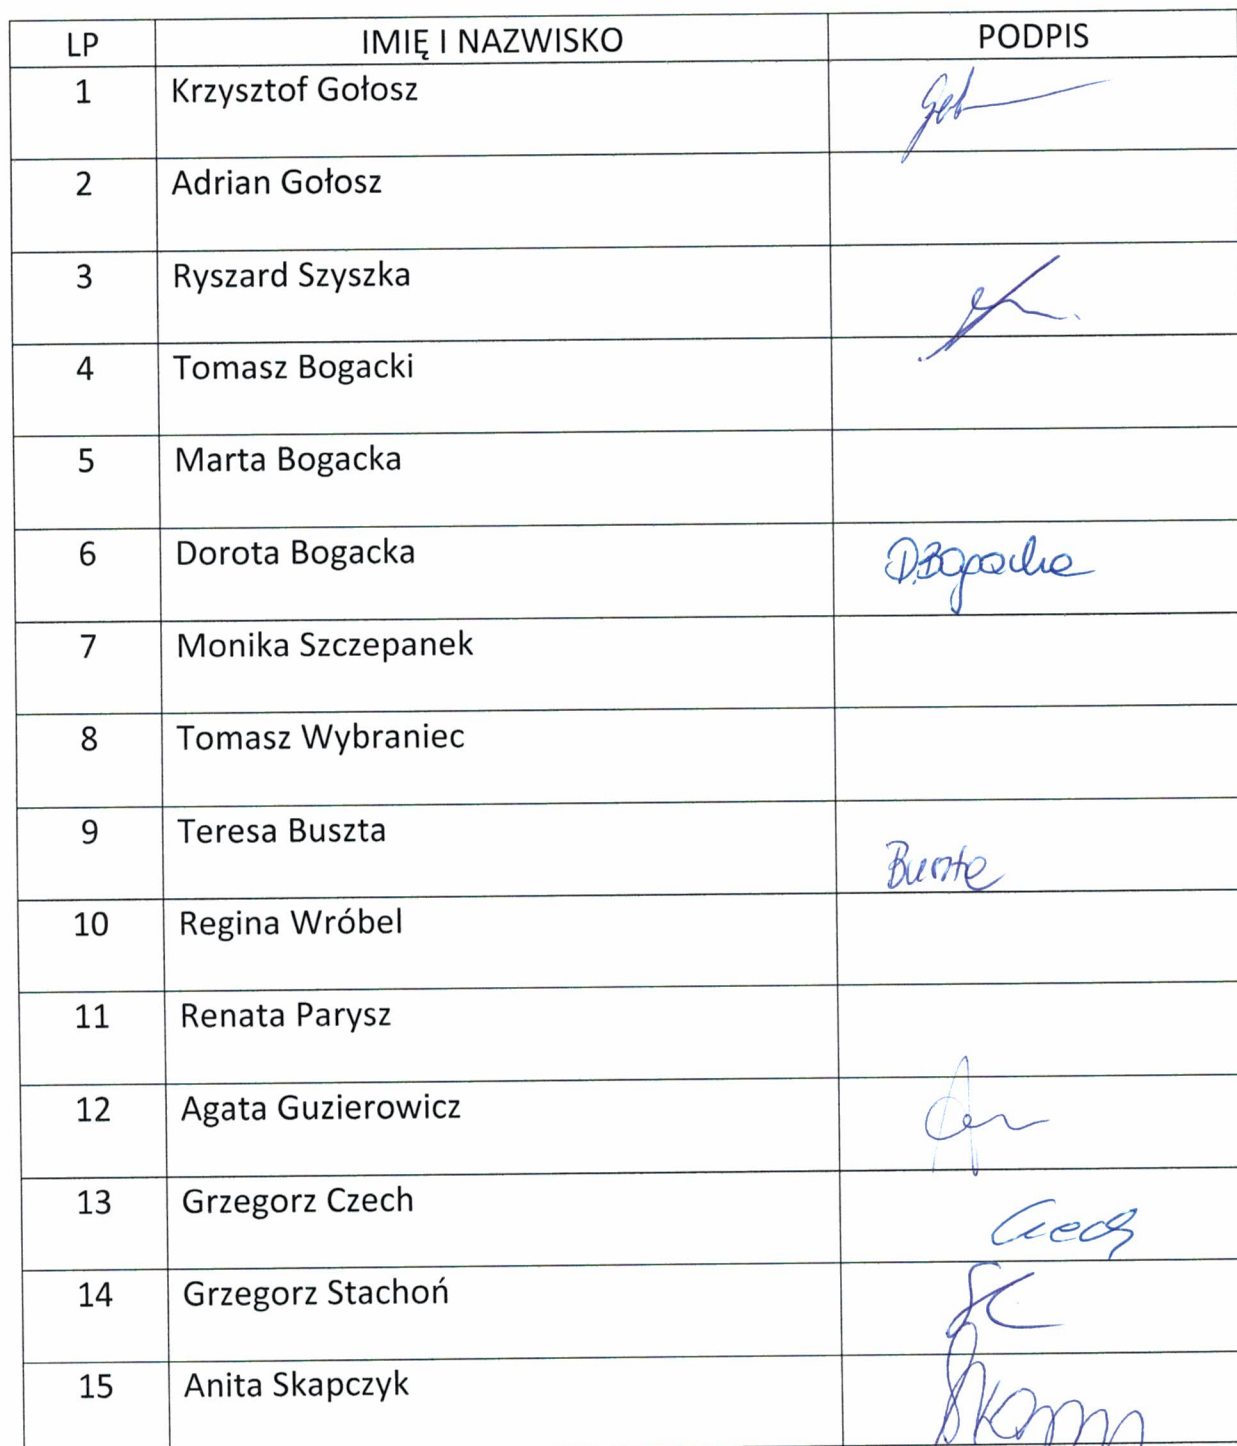 LP IMIĘ I NAZWISKO PODPIS
1 Krzysztof Gołosz
2 Adrian Gołosz
3 Ryszard Szyszka
4 Tomasz Bogacki
5 Marta Bogacka
6 Dorota Bogacka D.Bogacka
7 Monika Szczepanek
8 Tomasz Wybraniec
9 Teresa Buszta Buszta
10 Regina Wróbel
11 Renata Parysz
12 Agata Guzierowicz
13 Grzegorz Czech Czech
14 Grzegorz Stachoń
15 Anita Skapczyk